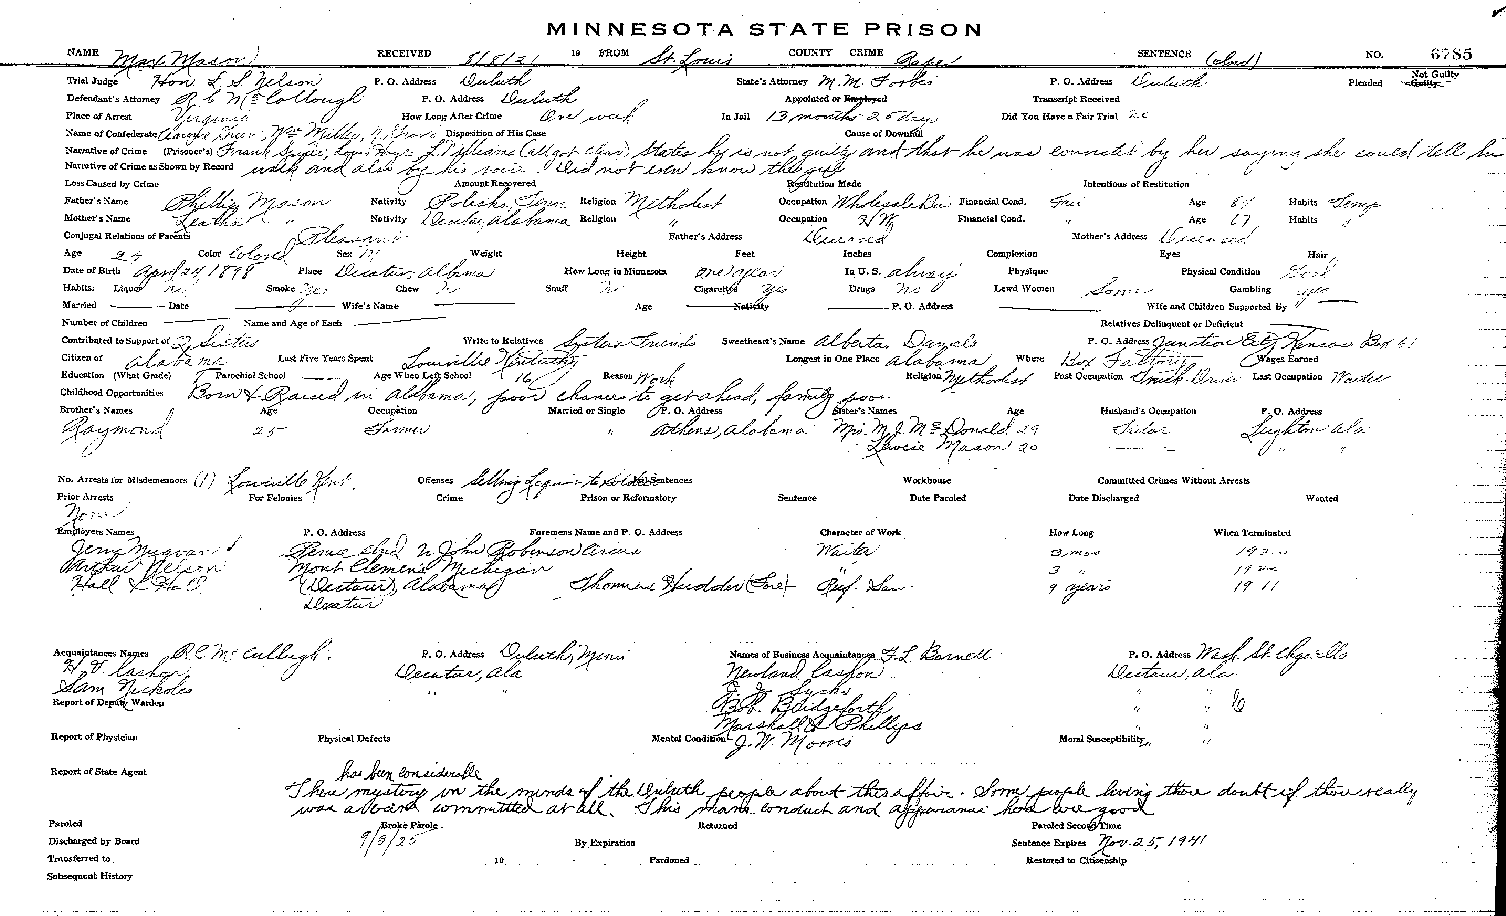 MINNESOTA STATE PRISON
NAME Max Mason RECEIVED 8/8/21 19 FROM St. Louis COUNTY CRIME Rape SENTENCE NO. 6785
Trial Judge Hon. L. S. Nelson P. O. Address Duluth State's Attorney M. M. Forbes P. O. Address Duluth Pleaded Not Guilty Guilty
Defendant's Attorney R C McCollough P. O. Address Duluth Appointed or Employed Transcript Received
Place of Arrest Virginia How Long After Crime One week In Jail 13 months 25 days Did You Have a Fair Trial no
Name of Confederate Wm Miller, Disposition of His Case Cause of Downfall
Narrative of Crime (Prisoner's) Frank L. Williams (all got clear) States he is not guilty and that he was convicted by her saying she could tell him
Narrative of Crime as Shown by Record and also by his voice. Did not even know the girl
Loss Caused by Crime Amount Recovered Restitution Made Intentions of Restitution
Father's Name Phillip Mason Nativity Tenn Religion Methodist Occupation Wholesale Financial Cond. Fair Age Habits Temp
Mother's Name " Nativity Decatur, Alabama Religion " Occupation H.W. Financial Cond. " Age 67 Habits "
Conjugal Relations of Parents Pleasant Father's Address Deceased Mother's Address Deceased
Age 24 Color Colored Sex M Weight Height Feet Inches Complexion Eyes Hair
Date of Birth April 24 1898 Place Decatur, Alabama How Long in Minnesota one year In U. S. always Physique Physical Condition Good
Habits: Liquor No Smoke Yes Chew No Snuff No Cigarettes Yes Drugs No Lewd Women Some Gambling yes
Married Date Wife's Name Age Nativity P. O. Address Wife and Children Supported By
Number of Children Name and Age of Each Relatives Delinquent or Deficient
Contributed to Support of 2 Sisters Write to Relatives Sisters Friends Sweetheart's Name Alberta Daniels P. O. Address Junction City, Kansas Box 61
Citizen of Alabama Last Five Years Spent Louisville Kentucky Longest in One Place Alabama Where Box Factory Wages Earned
Education (What Grade) Parochial School Age When Left School 16 Reason Work Religion Methodist Post Occupation Last Occupation Waiter
Childhood Opportunities Born & Raised in Alabama, poor chances to get ahead, family poor
Brother's Names Age Occupation Married or Single P. O. Address Sister's Names Age Husband's Occupation P. O. Address
Raymond 25 Farmer " Athens, Alabama Mrs. M. J. McDonald 29 Leighton Ala
Mason 20 " "
No. Arrests for Misdemeanors (1) Louisville Kent. Offenses Selling Liquor to Soldiers Sentences Workhouse Committed Crimes Without Arrests
Prior Arrests For Felonies Crime Prison or Reformatory Sentence Date Paroled Date Discharged Wanted
None
Employers Names P. O. Address Foremens Name and P. O. Address Character of Work How Long When Terminated
John Robinson Circus Waiter 3 mos
Arthur Nelson Mont Clemens Michigan " 3 "
Hall & Hall (Decatur) Alabama Thomas 9 years 1911
Decatur
Acquaintances Names R C McCullough. P. O. Address Duluth, Minn Names of Business Acquaintances F. L. Barnett P. O. Address
Decatur, Ala Newland Decatur, Ala
Sam Nichols " "
Report of Deputy Warden B. Bridgeforth " "
Marshall & Phillips " "
Report of Physician Physical Defects Mental Condition J. W. Morris Moral Susceptibility " "
Report of State Agent has been considerable
There mystery in the minds of the Duluth people about this affair. Some people living there doubt if there really
was a crime committed at all. This mans conduct and appearance here are good
Paroled Broke Parole Returned Paroled Second Time
Discharged by Board 9/3/25 By Expiration Sentence Expires Nov. 25, 1941
Transferred to 19 Pardoned Restored to Citizenship
Subsequent History